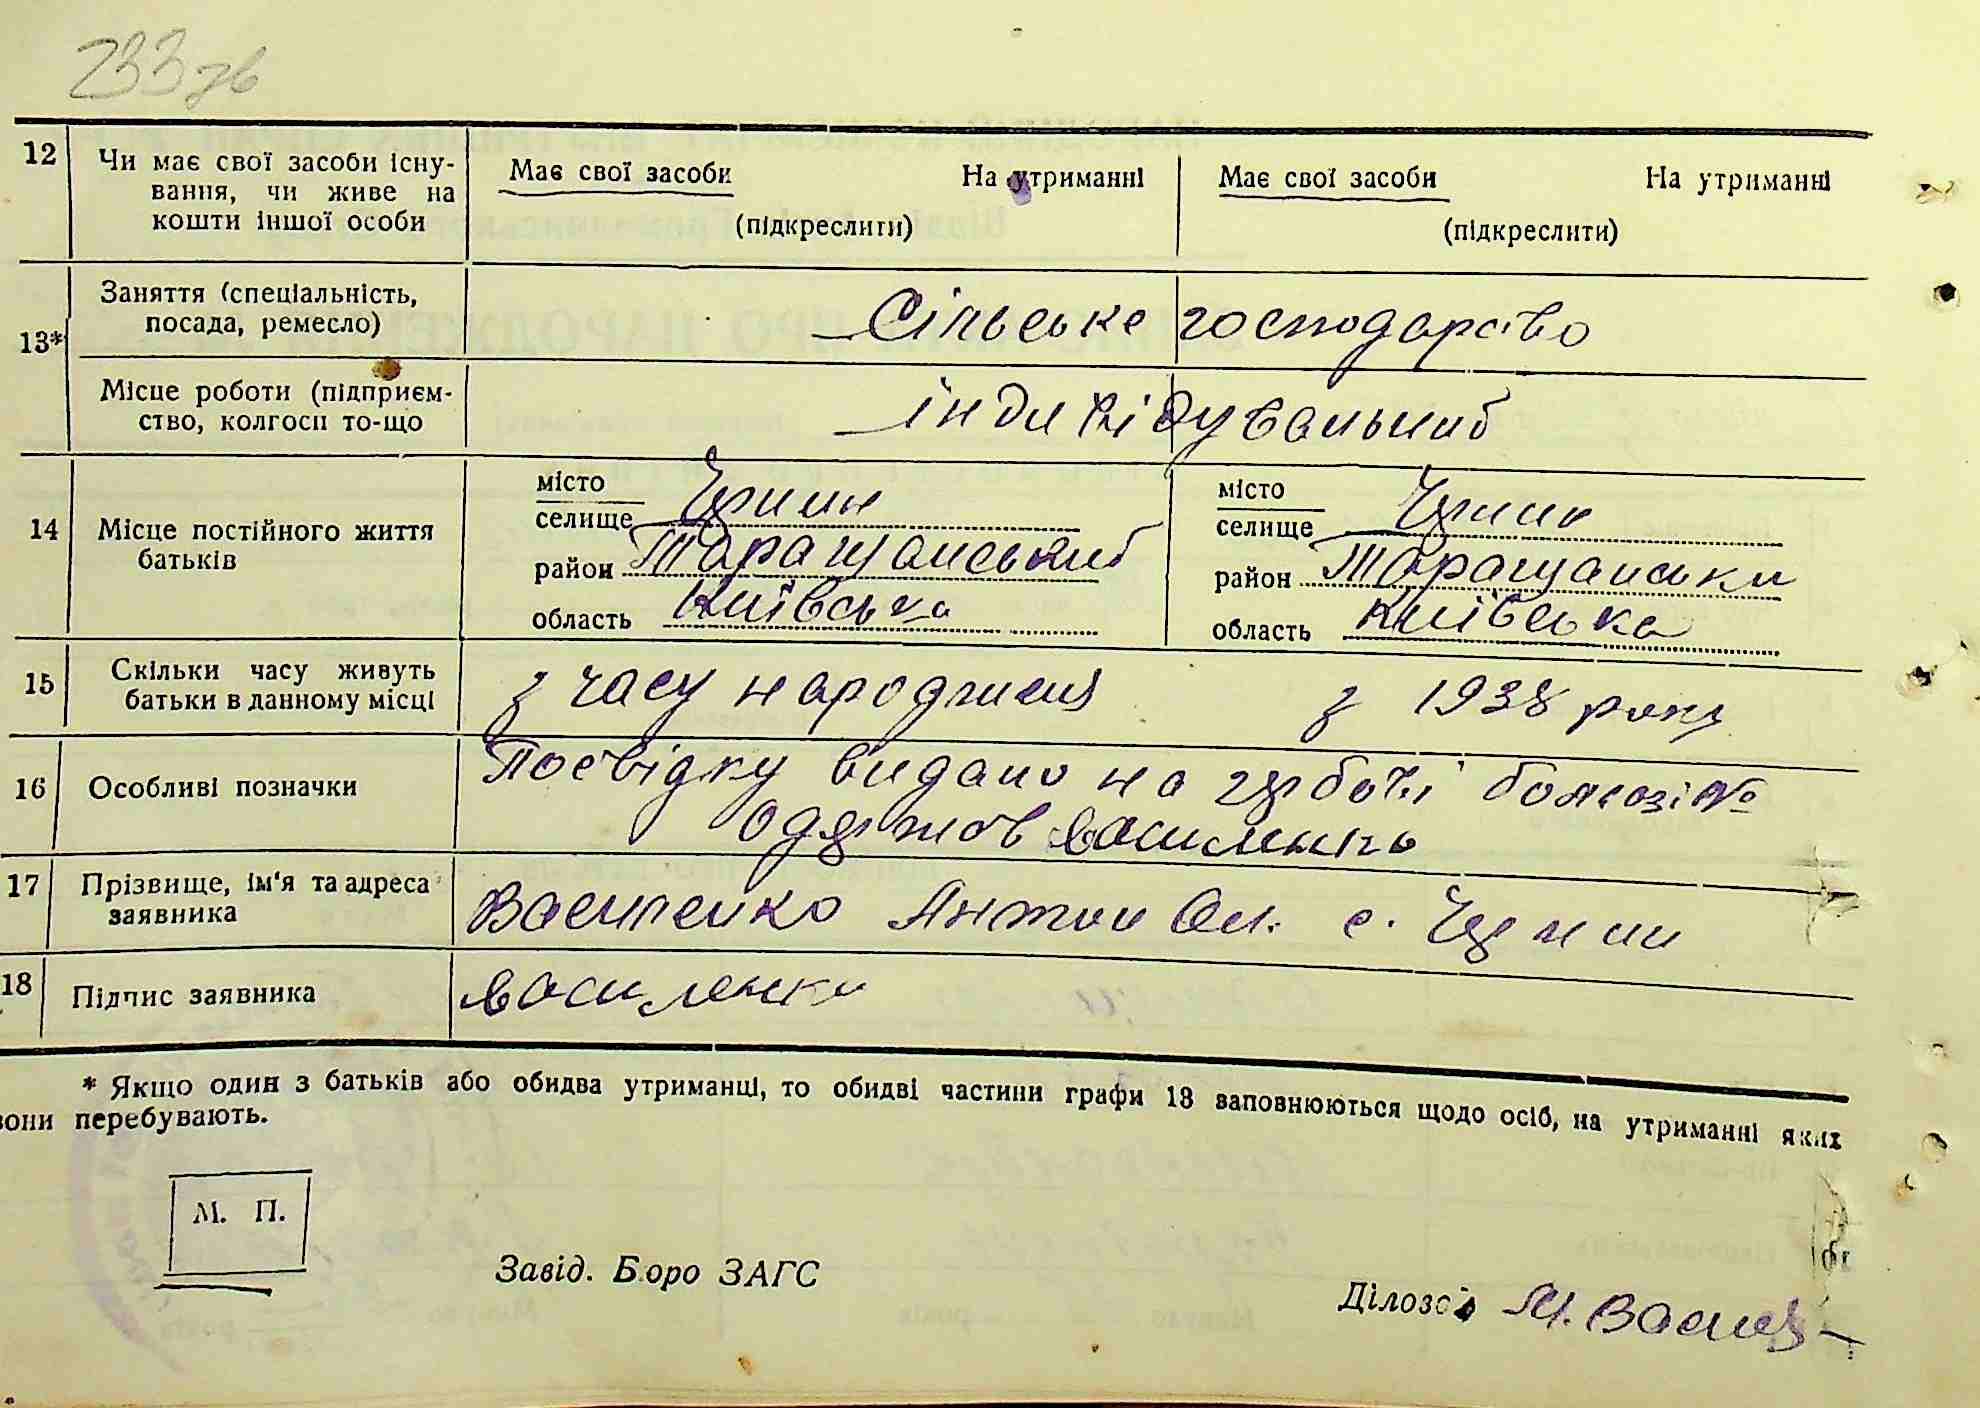 233зв
12 Чи має свої засоби існу-
вання, чи живе на
кошти іншої особи
Має свої засоби На утриманні
(підкреслити)
Має свої засоби На утриманні
(підкреслити)
13* Заняття (спеціальність,
посада, ремесло)
Сільське господарство
Місце роботи (підприєм-
ство, колгосп то-що
індивідувальний
14 Місце постійного життя
батьків
місто
селище
район Таращанський
область Київська
місто
селище
район Таращанськи
область Київська
15 Скільки часу живуть
батьки в данному місці
з часу народження з 1938 року
16 Особливі позначки
Посвідку видано на гербові №
одержов Василенко
17 Прізвище, ім'я та адреса
заявника
Василенко Антон с.
18 Підпис заявника
Василенко
* Якщо один з батьків або обидва утриманці, то обидві частини графи 13 заповнюються щодо осіб, на утриманні яких
вони перебувають.
М. П.
Завід. Бюро ЗАГС
Діловод М.